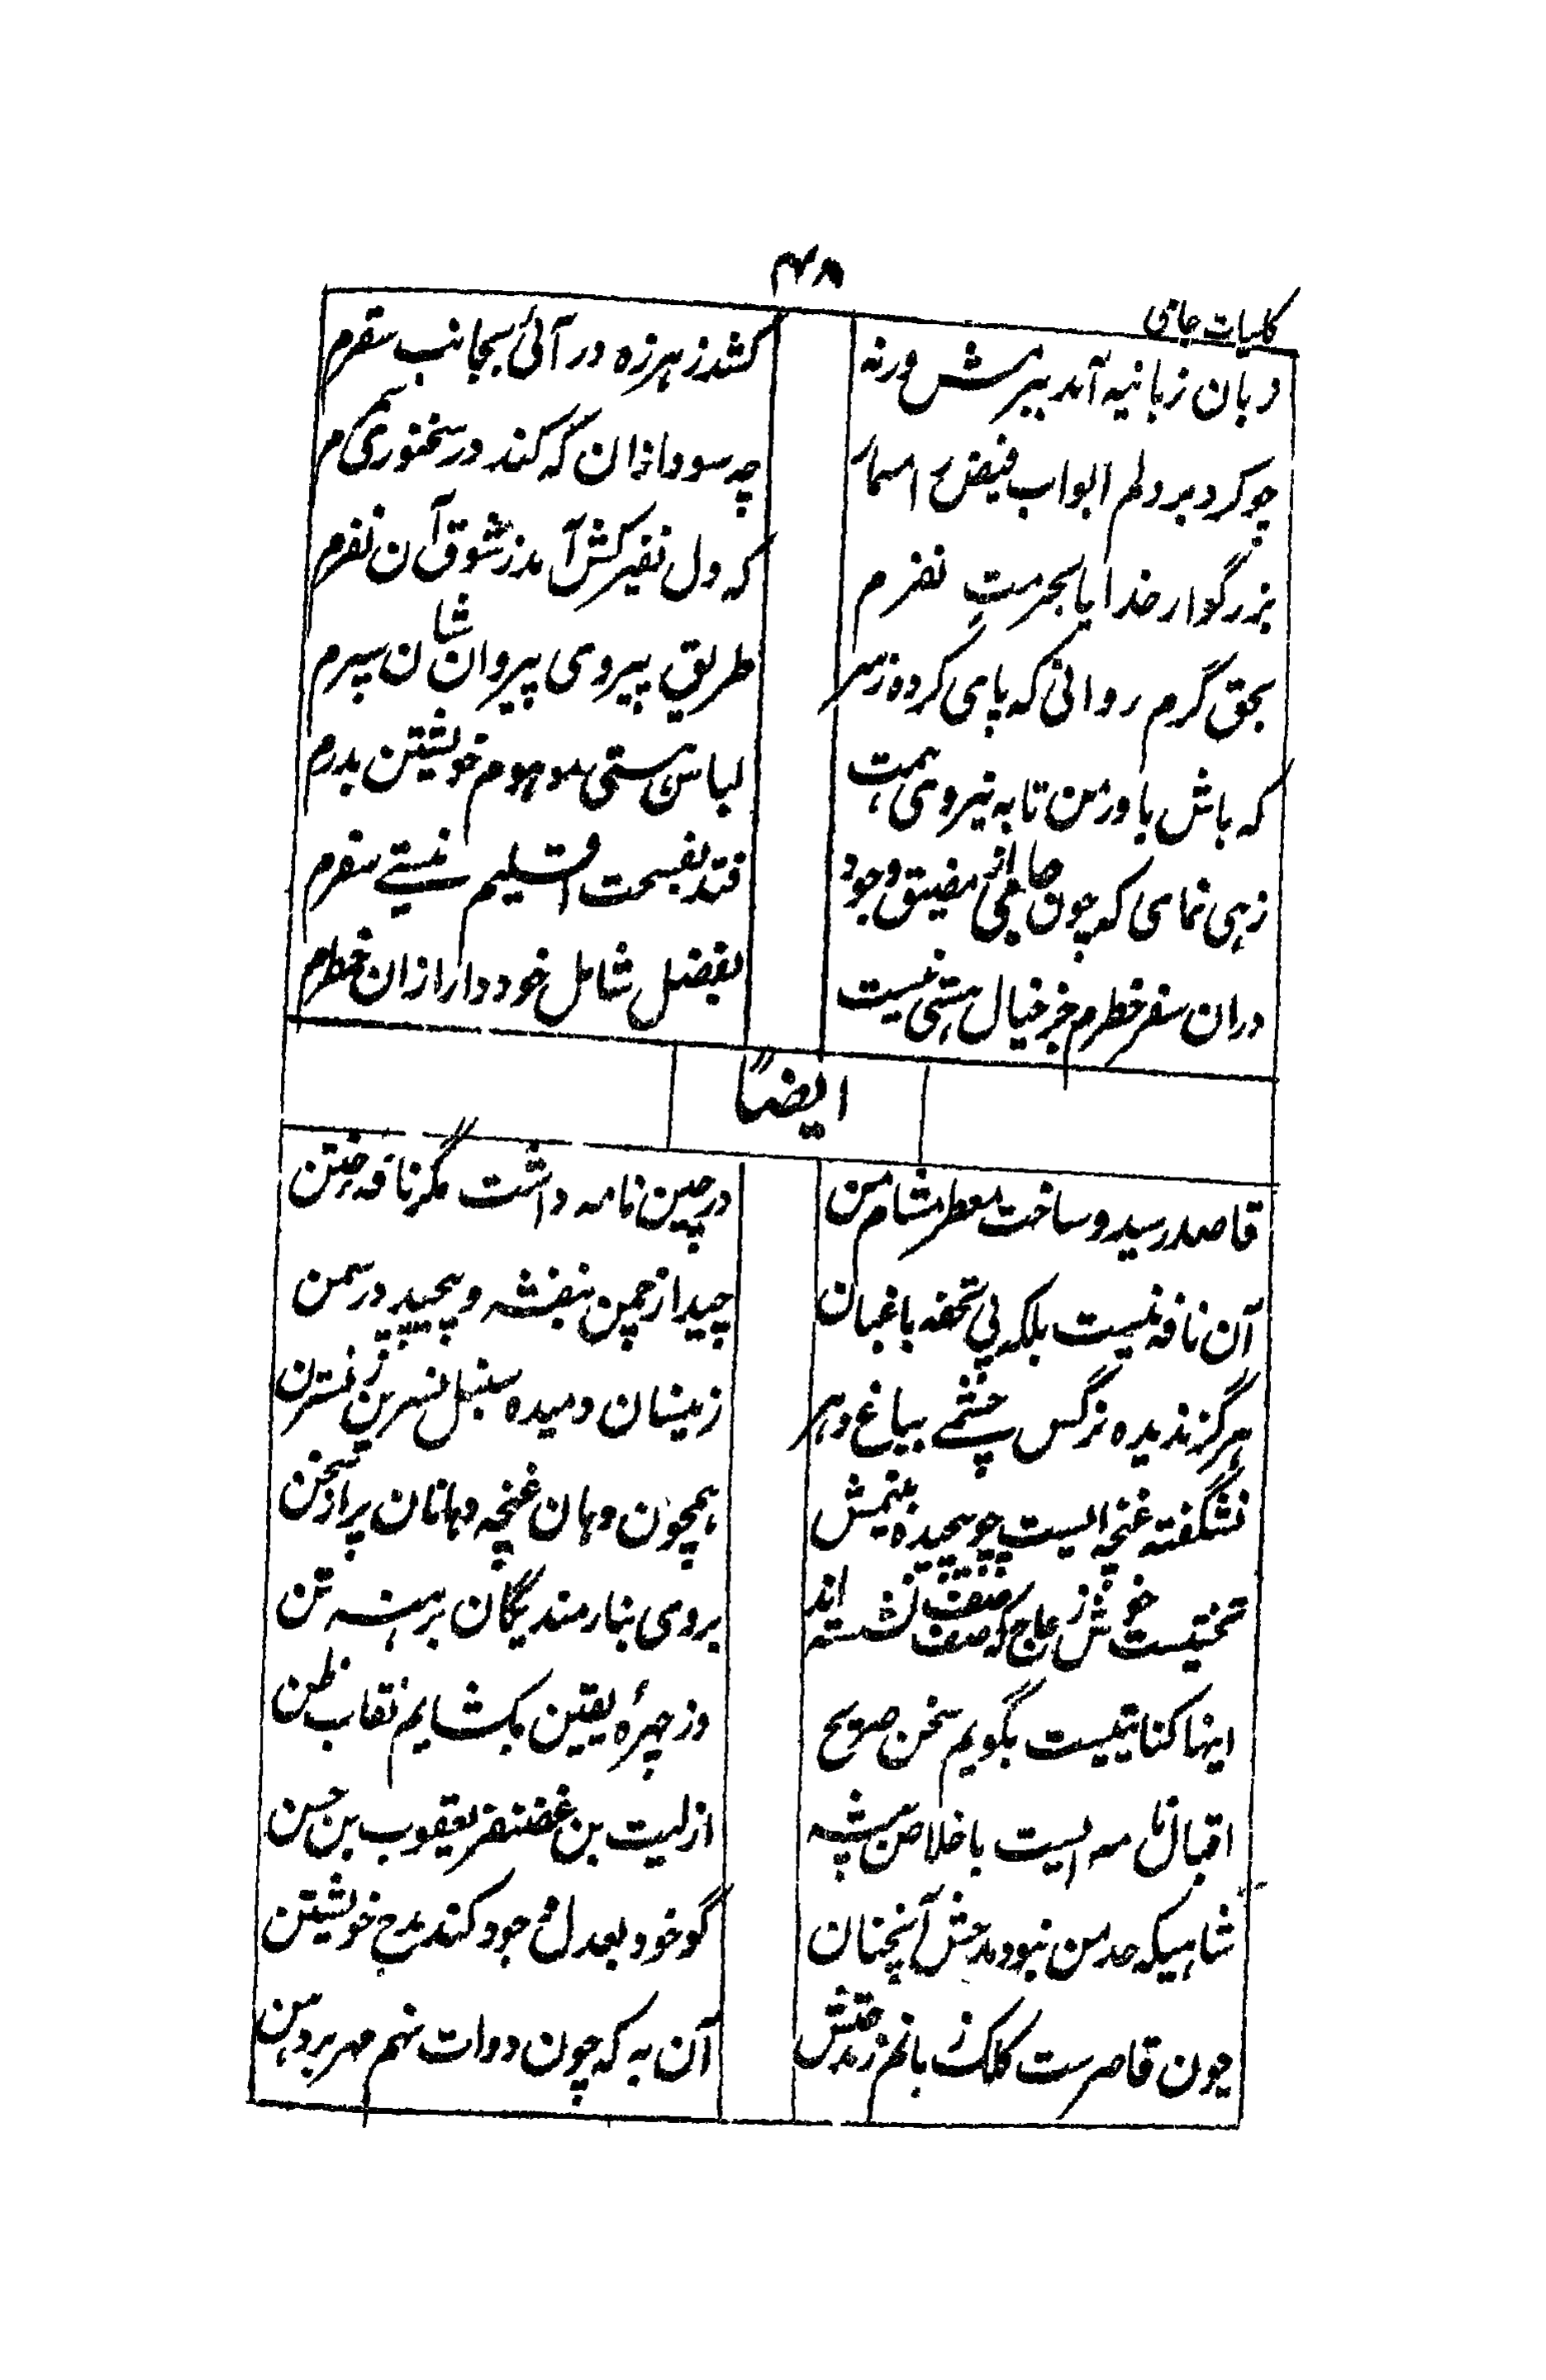 ۴۸
کلیات جامی
دهان زبانیه آمد ببرمش ورنه
کشد ز هرزه در آئی بجانب سقرم
چو کرد بر دلم ابواب فیض
چه سود ازان که کند در سخنوری سمرم
بزرگوار خدایا بحرمت نفرم
که دل نفیر کش آمد ز شوق آن نفرم
بحق گرم روانی که پای کرده ز سر
طریق پیروی پیروان شان سپرم
که باش یاور من تا به نیروی همت
لباس هستی موهوم خویشتن بدرم
رهی نمای که چون جامی از مضیق وجود
فتد بفسحت اقلیم نیستی سفرم
دران سفر خطرم جز خیال هستی نیست
بفضل شامل خود دار ازان خطرم
ایضاً
قاصد رسید و ساخت معطر مشام من
در چین نامه داشت مگر نافه ختن
آن نافه نیست بلکه پی تحفه باغبان
چید از چمن بنفشه و پیچید در سمن
هرگز ندیده نرگس چشمے بباغ دهر
زینسان دمیده سنبل نسرین ز نسترن
نشگفته غنچه ایست چو پیچیده بنیمش
همچون دهان غنچه دهانان پر از سخن
تختیست خوش ز عاج که صف صف نشسته اند
بروی بنار مندیگان برهنه تن
اینها کنایتیست بگویم سخن صریح
وز چهرهٔ یقین بکشایم نقاب ظن
اقبال نامه ایست باخلاص پیشه
از لیث بن غضنفر یعقوب بن حسن
شاهیکه حد من نبود مدحش آنچنان
گو خود بعدل و جود کند مدح خویشتن
چون قاصرست کلک زبانم ز مدحتش
آن به که چون دوات نهم مهر بر دهن